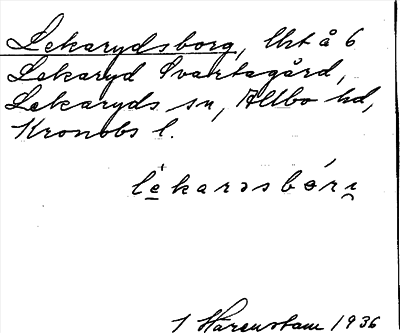 Lekarydsborg, lht å 6
Lekaryd Svartagård,
Lekaryds sn, Allbo hd,
Kronobs l.
lèkarəsbórı
1 Harenstam 1936